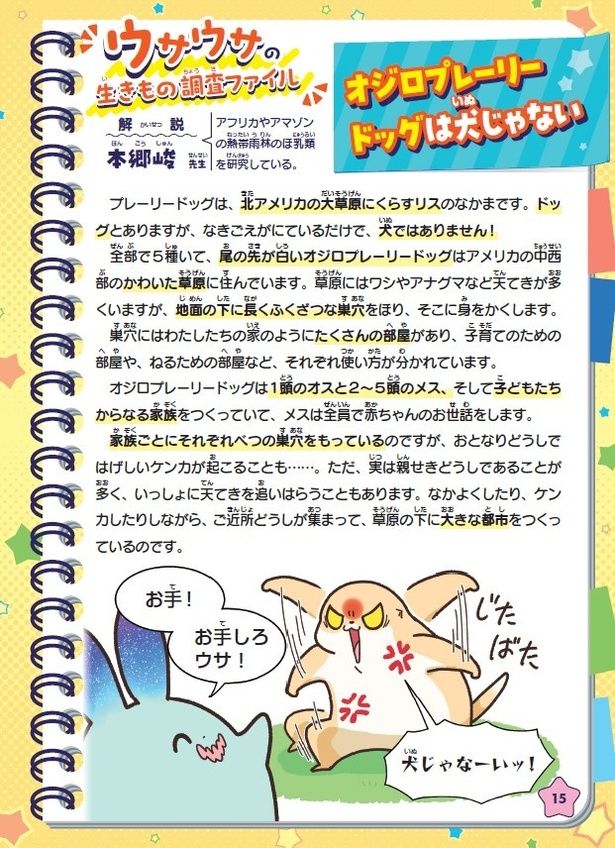 ウサウサの
生きもの調査ファイル
解説
本郷峻先生
アフリカやアマゾン
の熱帯雨林のほ乳類
を研究している。
オジロプレーリー
ドッグは犬じゃない
プレーリードッグは、北アメリカの大草原にくらすリスのなかまです。ドッ
グとありますが、なきごえがにているだけで、犬ではありません!
全部で5種いて、尾の先が白いオジロプレーリードッグはアメリカの中西
部のかわいた草原に住んでいます。草原にはワシやアナグマなど天てきが多
くいますが、地面の下に長くふくざつな巣穴をほり、そこに身をかくします。
巣穴にはわたしたちの家のようにたくさんの部屋があり、子育てのための
部屋や、ねるための部屋など、それぞれ使い方が分かれています。
オジロプレーリードッグは1頭のオスと2〜5頭のメス、そして子どもたち
からなる家族をつくっていて、メスは全員で赤ちゃんのお世話をします。
家族ごとにそれぞれべつの巣穴をもっているのですが、おとなりどうしで
はげしいケンカが起こることも……。ただ、実は親せきどうしであることが
多く、いっしょに天てきを追いはらうこともあります。なかよくしたり、ケン
カしたりしながら、ご近所どうしが集まって、草原の下に大きな都市をつくっ
ているのです。
お手!
お手しろ
ウサ!
じた
ばた
犬じゃなーいッ!
15